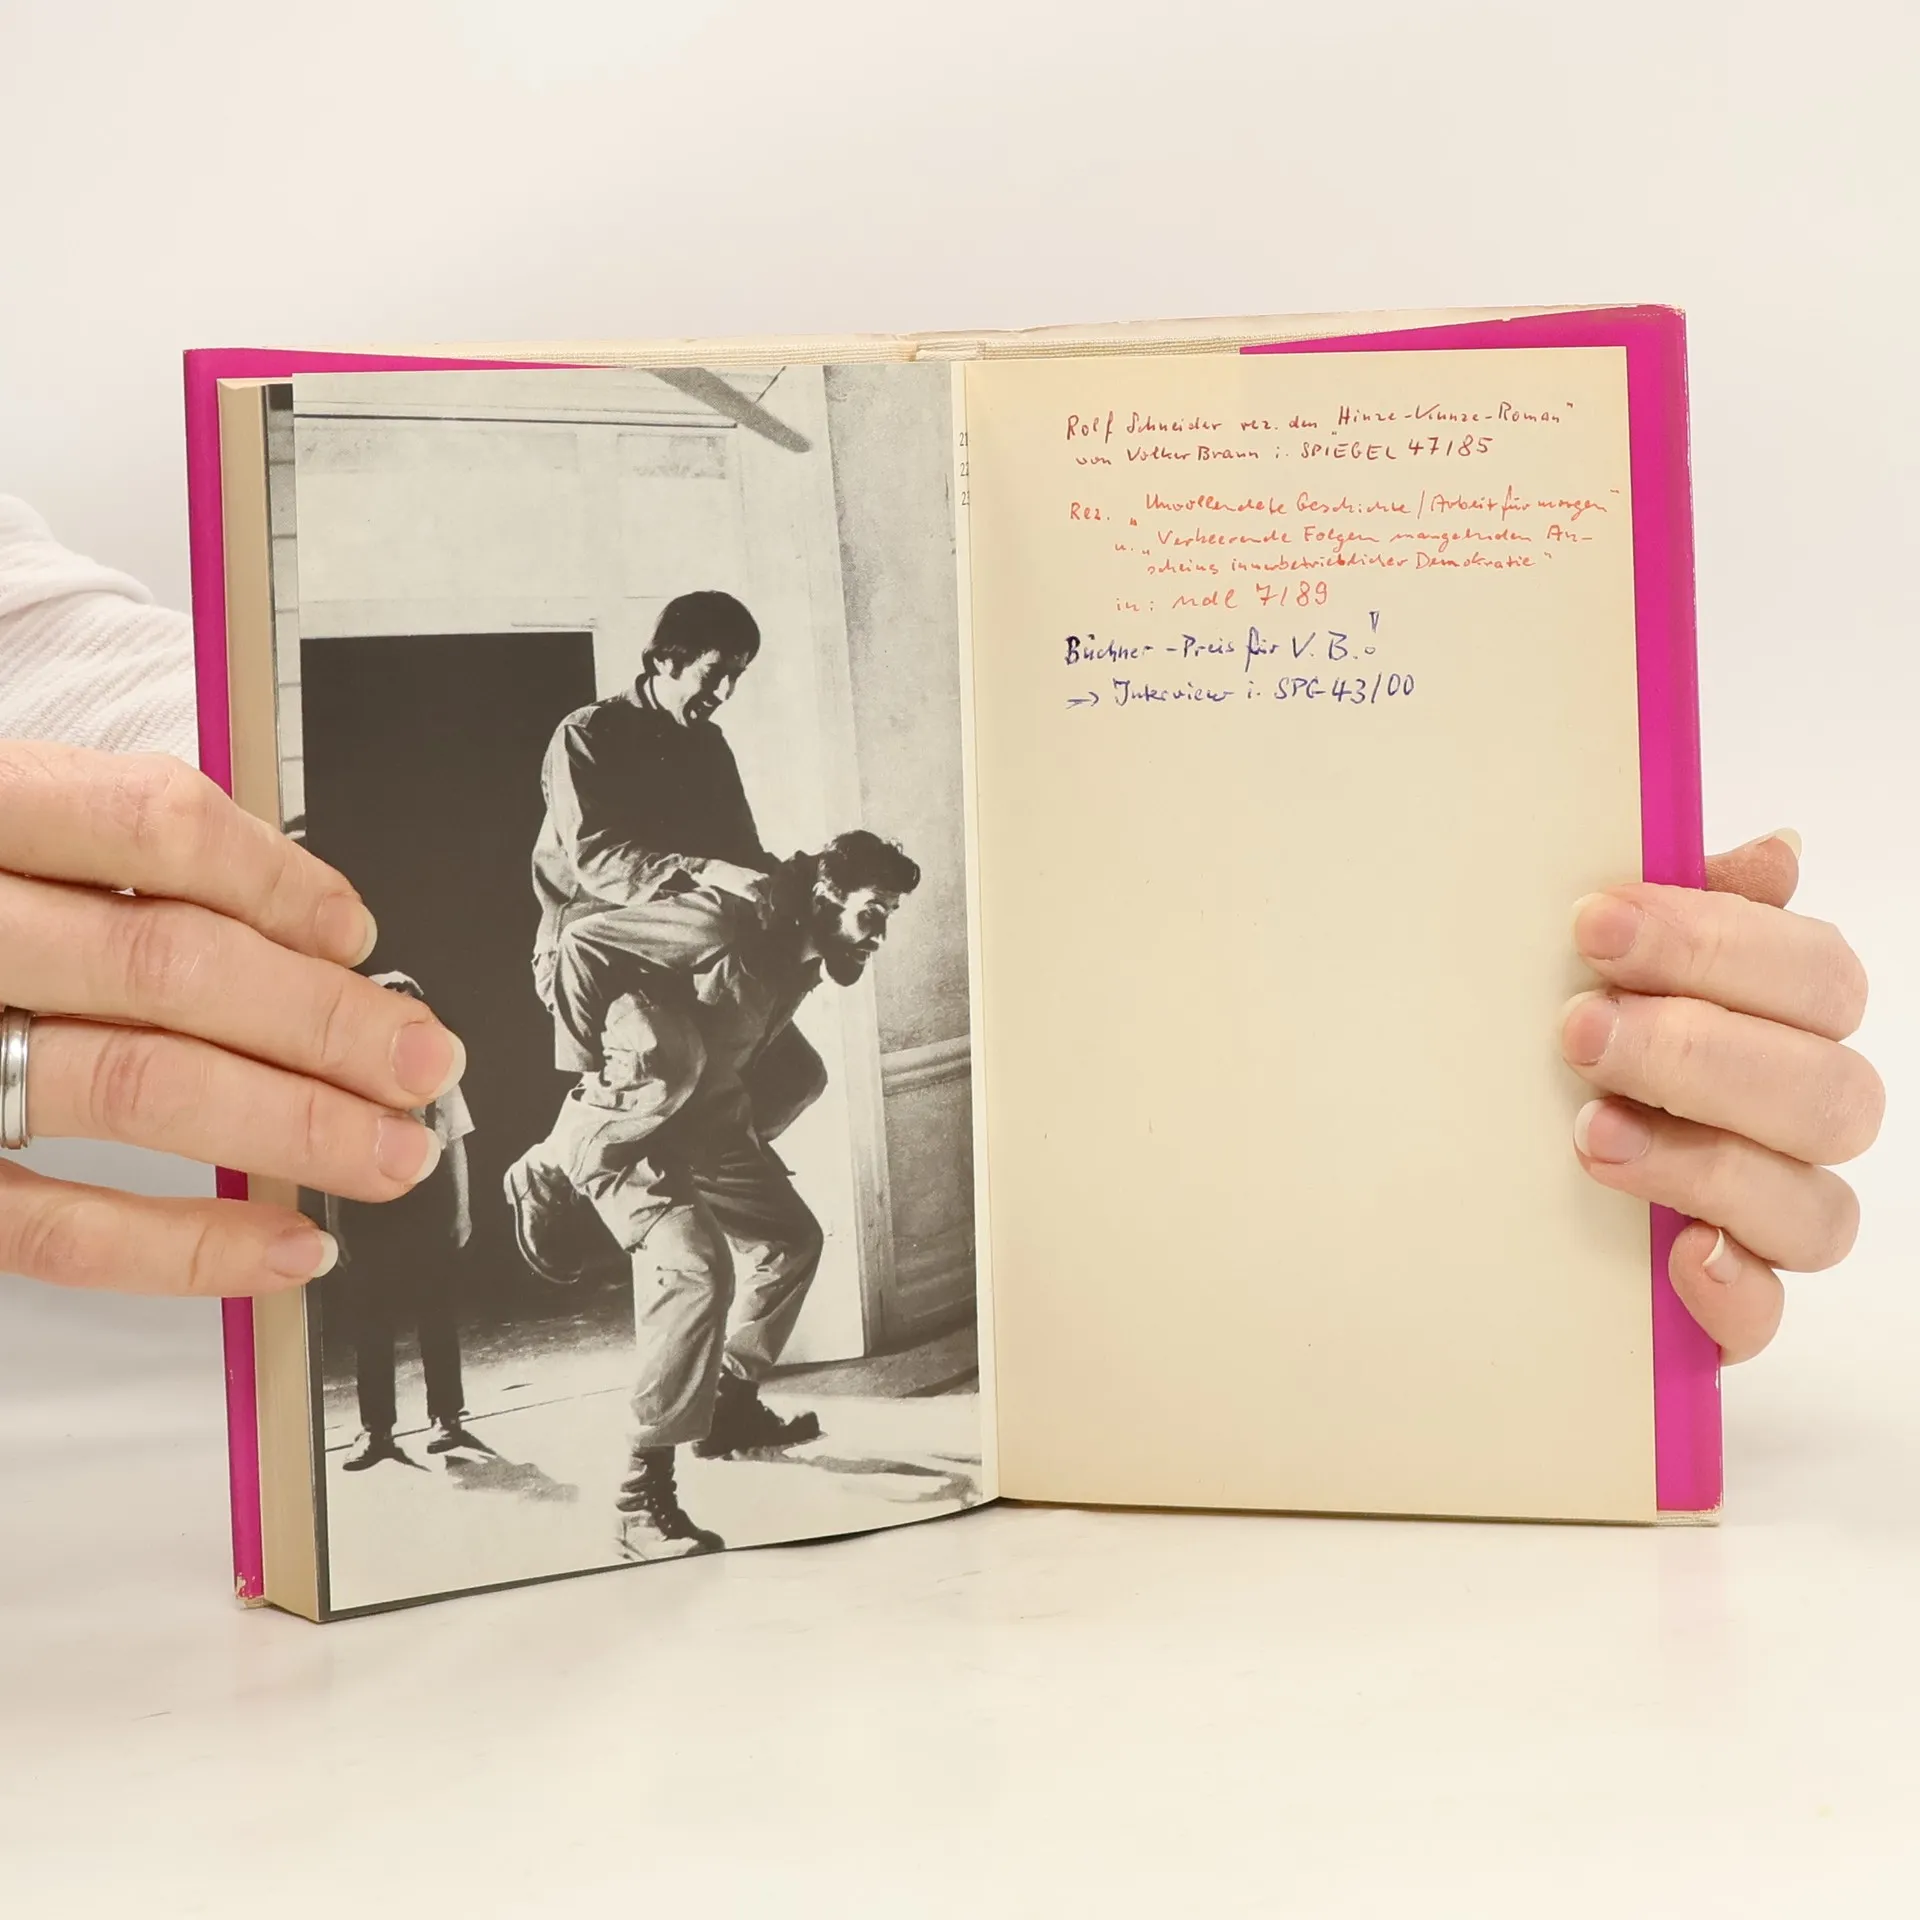 21
22
23
Rolf Schneider rez. den "Hinze-Kunze-Roman"
von Volker Braun i. SPIEGEL 47/85
Rez. "Unvollendete Geschichte/Arbeit für morgen"
u. "Verheerende Folgen mangelnden An-
scheins innerbetrieblicher Demokratie"
in: ndl 7/89
Büchner-Preis für V. B.!
→ Interview i. SPG 43/00